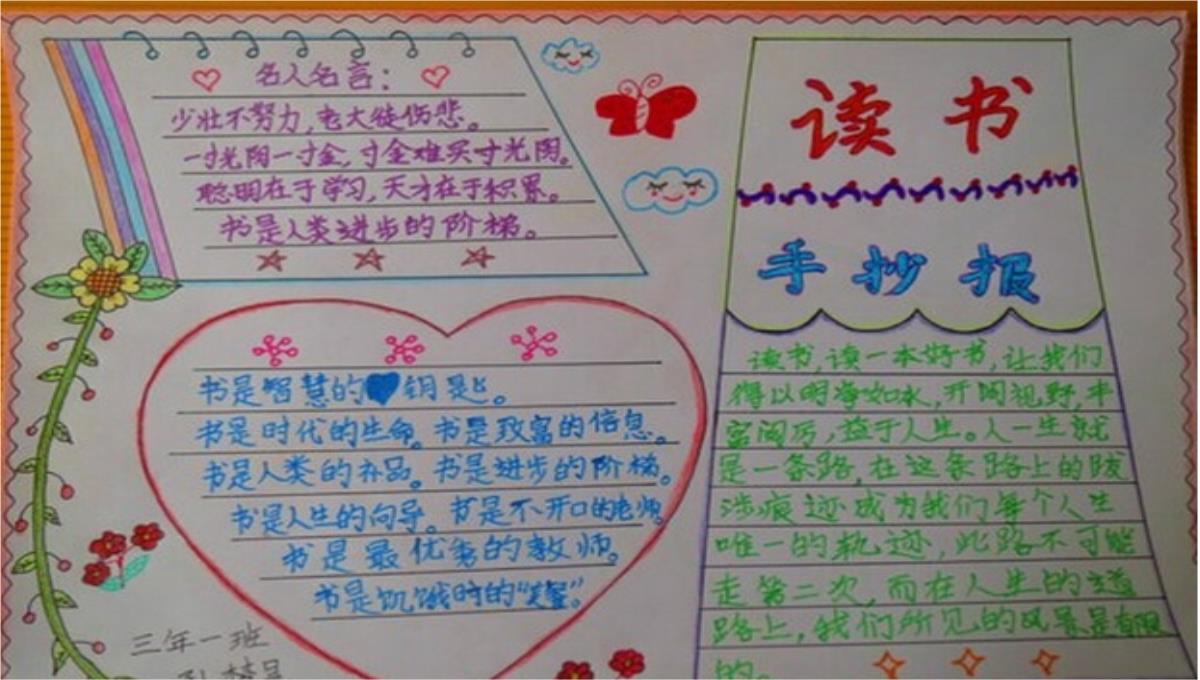 名人名言：
少壮不努力，老大徒伤悲。
一寸光阴一寸金，寸金难买寸光阴。
聪明在于学习，天才在于积累。
书是人类进步的阶梯。
读书
手抄报
书是智慧的钥匙。
书是时代的生命。书是致富的信息。
书是人类的补品。书是进步的阶梯。
书是人生的向导。书是不开口的老师。
书是最优秀的教师。
书是饥饿时的“美餐”。
读书，读一本好书，让我们
得以明净如水，开阔视野，丰
富阅历，益于人生。人一生就
是一条路，在这条路上的跋
涉痕迹成为我们每个人生
唯一的轨迹，此路不可能
走第二次，而在人生的道
路上，我们所见的风景是有限
的。
三年一班